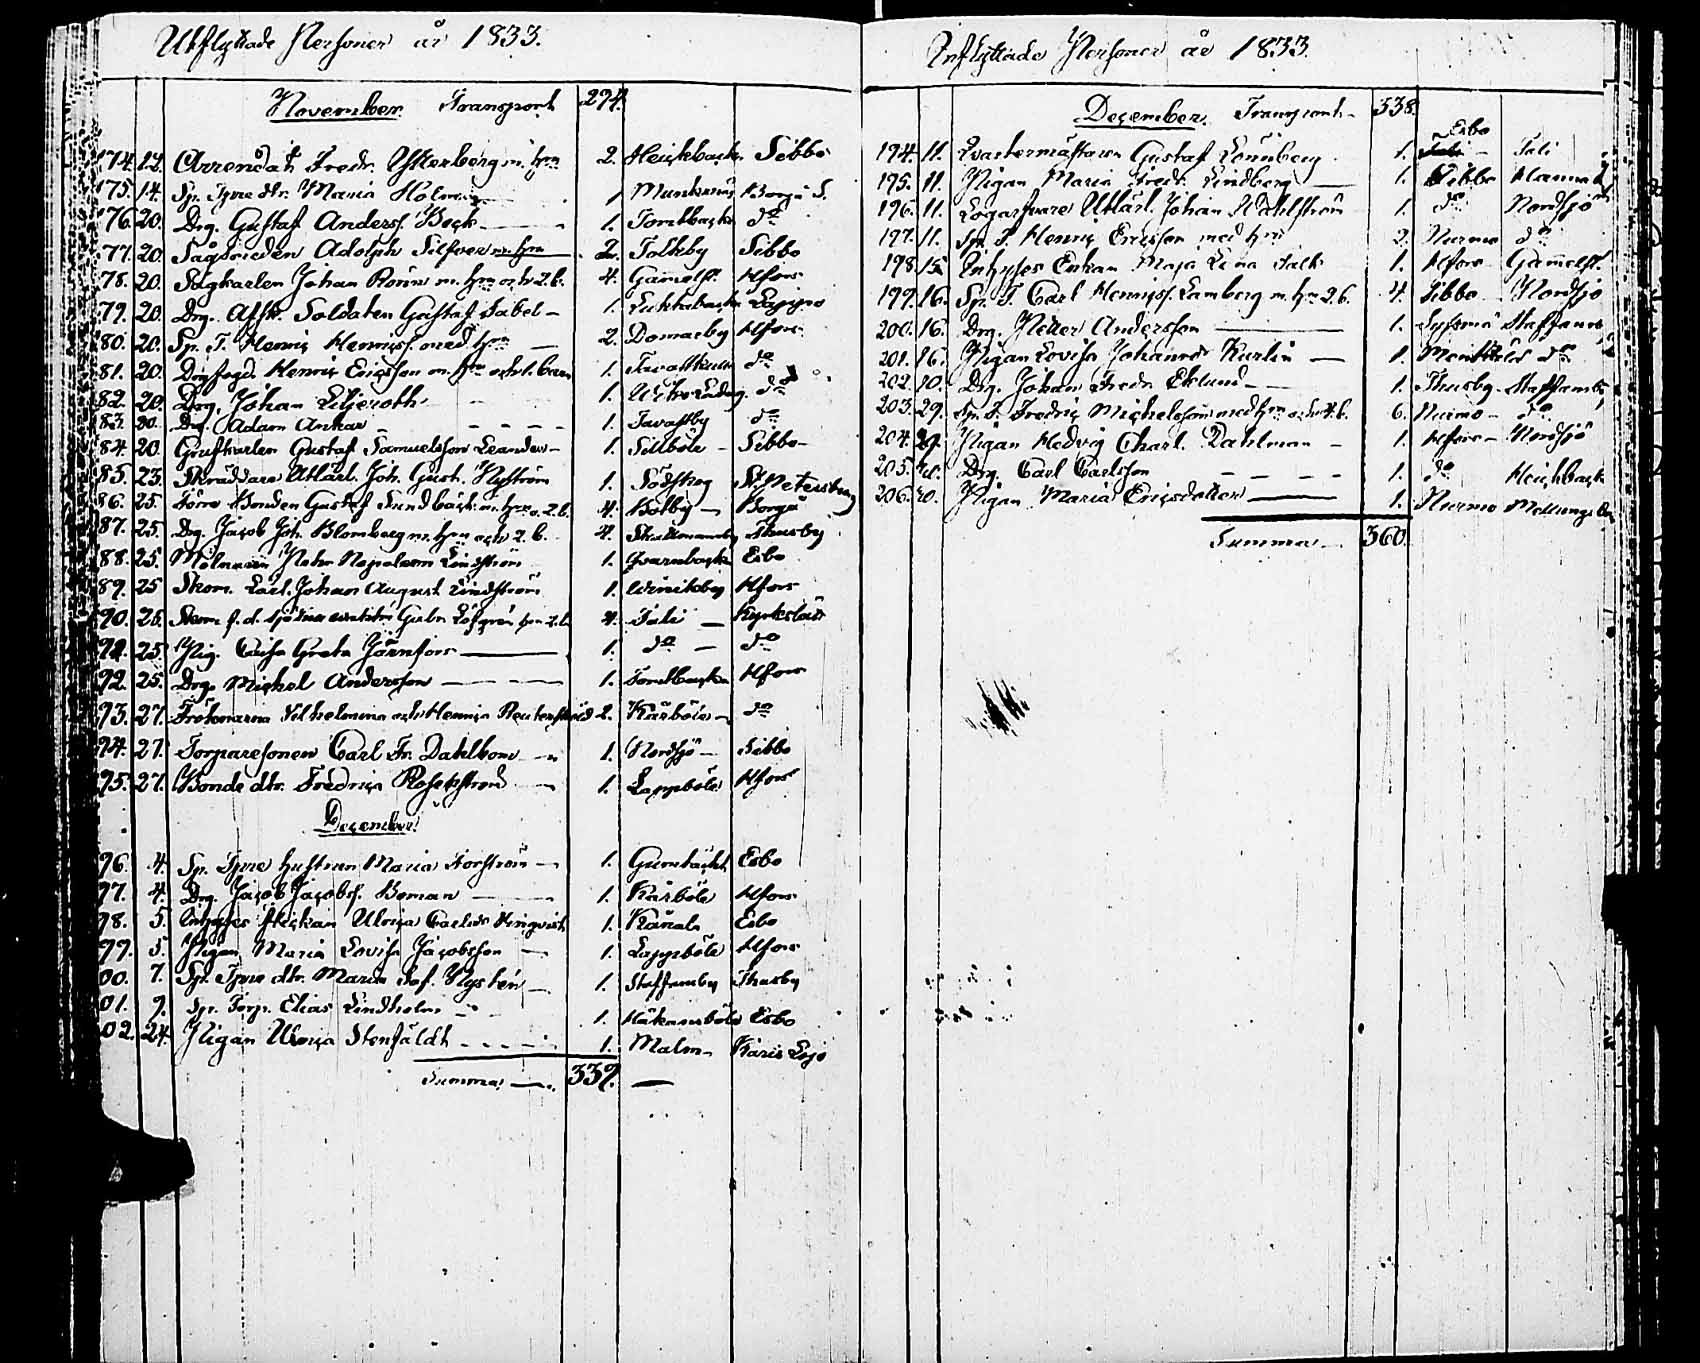 Utflyttade Personer år 1833.
November. Transport 274.
174. 12. Arrendat. Fredr. Ytterberg m. hru 2. Heickbacka Sibbo
175. 14. Sp. Tjre dtr. Maria Holm 1 Munksnäs Borgå S.
176. 20. Drg. Gustaf Anderss. Bock 1. Tomtbacka do
77. 20. Sågsmeden Adolph Silfver m. hru 2. Tolkby Sibbo
78. 20. Sågkarlen Johan Rorin m. hru och 2 b. 4. Gamelst. Hfors
79. 20. Drg. Afsk. Soldaten Gustaf Sabel 1. Lukkobacka Lappo
80. 20. Sp. T. Henric Henricss. med hru 2. Domarby Hfors
81. 20. Drg. Henric Ericsson m. hru och 1. barn 1. do
82. 20. Drg. Johan Liljeroth 1. do
83. 20. Drg. Adam Ankar 1. Tavastby do
84. 20. Grufkarlen Gustaf Samuelsson Leander 1. Sillböle Sibbo
85. 23. Skräddare Utlärl. Joh. Gust. Nyström 1. Södskog St. Petersburg
86. 25. Förre Bonden Gustaf Sundbäck m. hru o. 2 b. 4. Botby Borgå
87. 25. Drg. Jacob Joh. Blomberg m. hru och 2 b. 4. Skattmansby Thusby
88. 25. Petr Napoleon Lindström 1. Qvarnbacka Esbo
89. 25 Skom. Lärl. Johan August Lindström 1. Winikby Hfors
90. 25. Gabr. Löfgren hru 2 b. 4. Tali Kyrkslätt
91. 25. Pig. Caisa Greta Jörnfors 1. do do
92. 25. Drg. Michel Andersson 1. Tomtbacka Hfors
93. 27. Fröknarna Vilhelmina och Henrica Reuterskiöld 2. Kårböle do
94. 27. Torparesonen Carl Fr. Dahlbom 1. Nordsjö Sibbo
95. 27. Bonde dtr. Fredrica Rosenström 1. Lappböle Hfors
December
96. 4. Sp. Tjre hustrun Maria Forström 1. Gumtäckt Esbo
97. 4. Drg. Jacob Jacobss. Boman 1. Kårböle Hfors
98. 5. Inhyses flickan Ulrica Carlsdr 1. Kånala Esbo
99. 5. Pigan Maria Lovisa Jacobsson 1. Lappböle Hfors
00. 7. Sp. Tjre dtr. Maria Sof. Nystén 1. Staffansby Thusby
01. 9. Sp. Torp. Elias Lindholm 1. Håkansböle Esbo
02. 24. Pigan Ulrica Stenfäldt 1. Malm Karis Lojo
Summa 337.
Inflyttade Personer år 1833.
December. Transport 338.
194. 11. Qvartermästaren Gustaf Lönnberg 1. Esbo Tali
195. 11. Pigan Maria Fredr. Lindberg 1. Sibbo
196. 11. Utlärl. Johan Wahlström 1. do Nordsjö
197. 11. Sp. T. Henric Ericsson med hru 2. Nurmo do
198. 15. Inhyses Enkan Maja Lena Falk 1. Hfors Gammelst.
199. 16. Sp. T. Carl Henricss. Lamberg m. hru 2 b. 4. Sibbo Nordsjö
200. 16. Drg. Petter Andersson 1. Sysmä Staffansb
201. 16. Pigan Lovisa Johansdr Karlin 1. do
202. 20. Drg. Johan Fredr. Eklund 1. Thusby Staffansb
203. 29. Sp. T. Fredric Michelsson med hru och 4 b. 6. Nurmo do
204. 29. Pigan Hedvig Charl. Dahlman 1. Hfors Nordsjö
205. Drg. Carl Carlsson 1. do Heickback
206. Pigan Maria Ericsdotter 1. Nurmo Mellungsb
Summa 360.